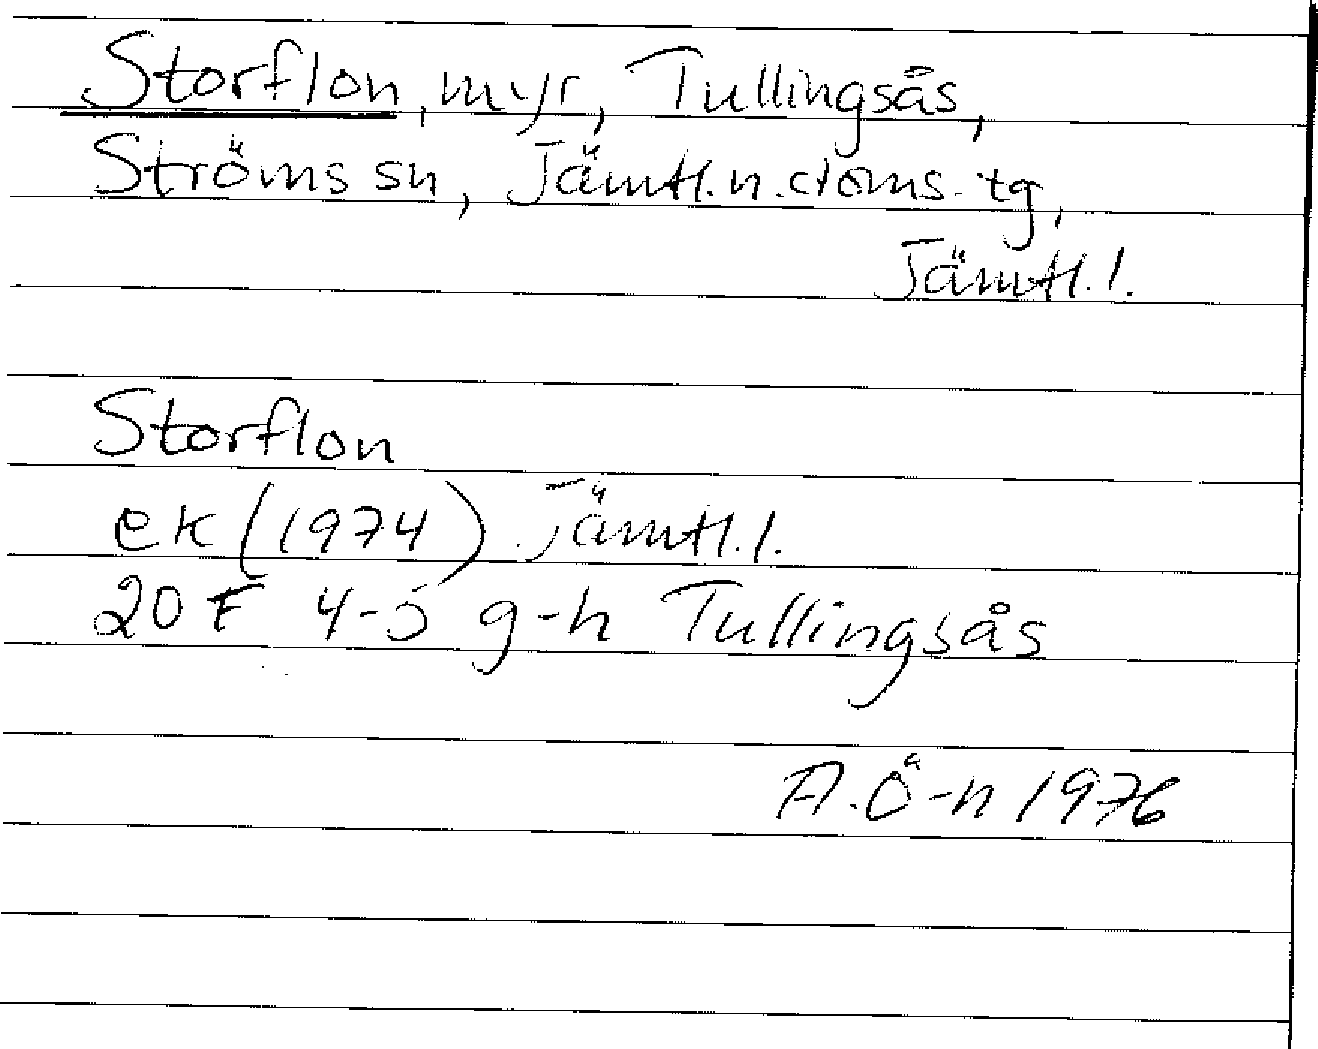 Storflon, myr, Tullingsås,
Ströms sn, Jämtl.n.doms.tg,
Jämtl.l.
Storflon
ek (1974) Jämtl.l.
20 F 4-5 g-h Tullingsås
A.Ö-n 1976